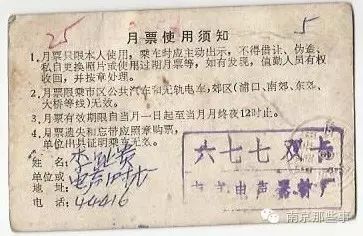 25
5
月票使用须知
1.月票只限本人使用,乘车时应主动出示,不得借让、伪造、
私自更换照片或使用过期月票等,如有发现,值勤人员有权
收回,并按章处理。
2.月票限乘市区公共汽车和无轨电车,郊区(浦口、南郊、东郊、
大桥等线)无效。
3.月票有效期限自当月一日起至当月月终夜12时止。
4.月票遗失和忘带应照章购票,
单位出具证明乘车无效。
姓名:
单位或
地址:
电话:44416
六七七双卡
电声器材厂
南京那些事